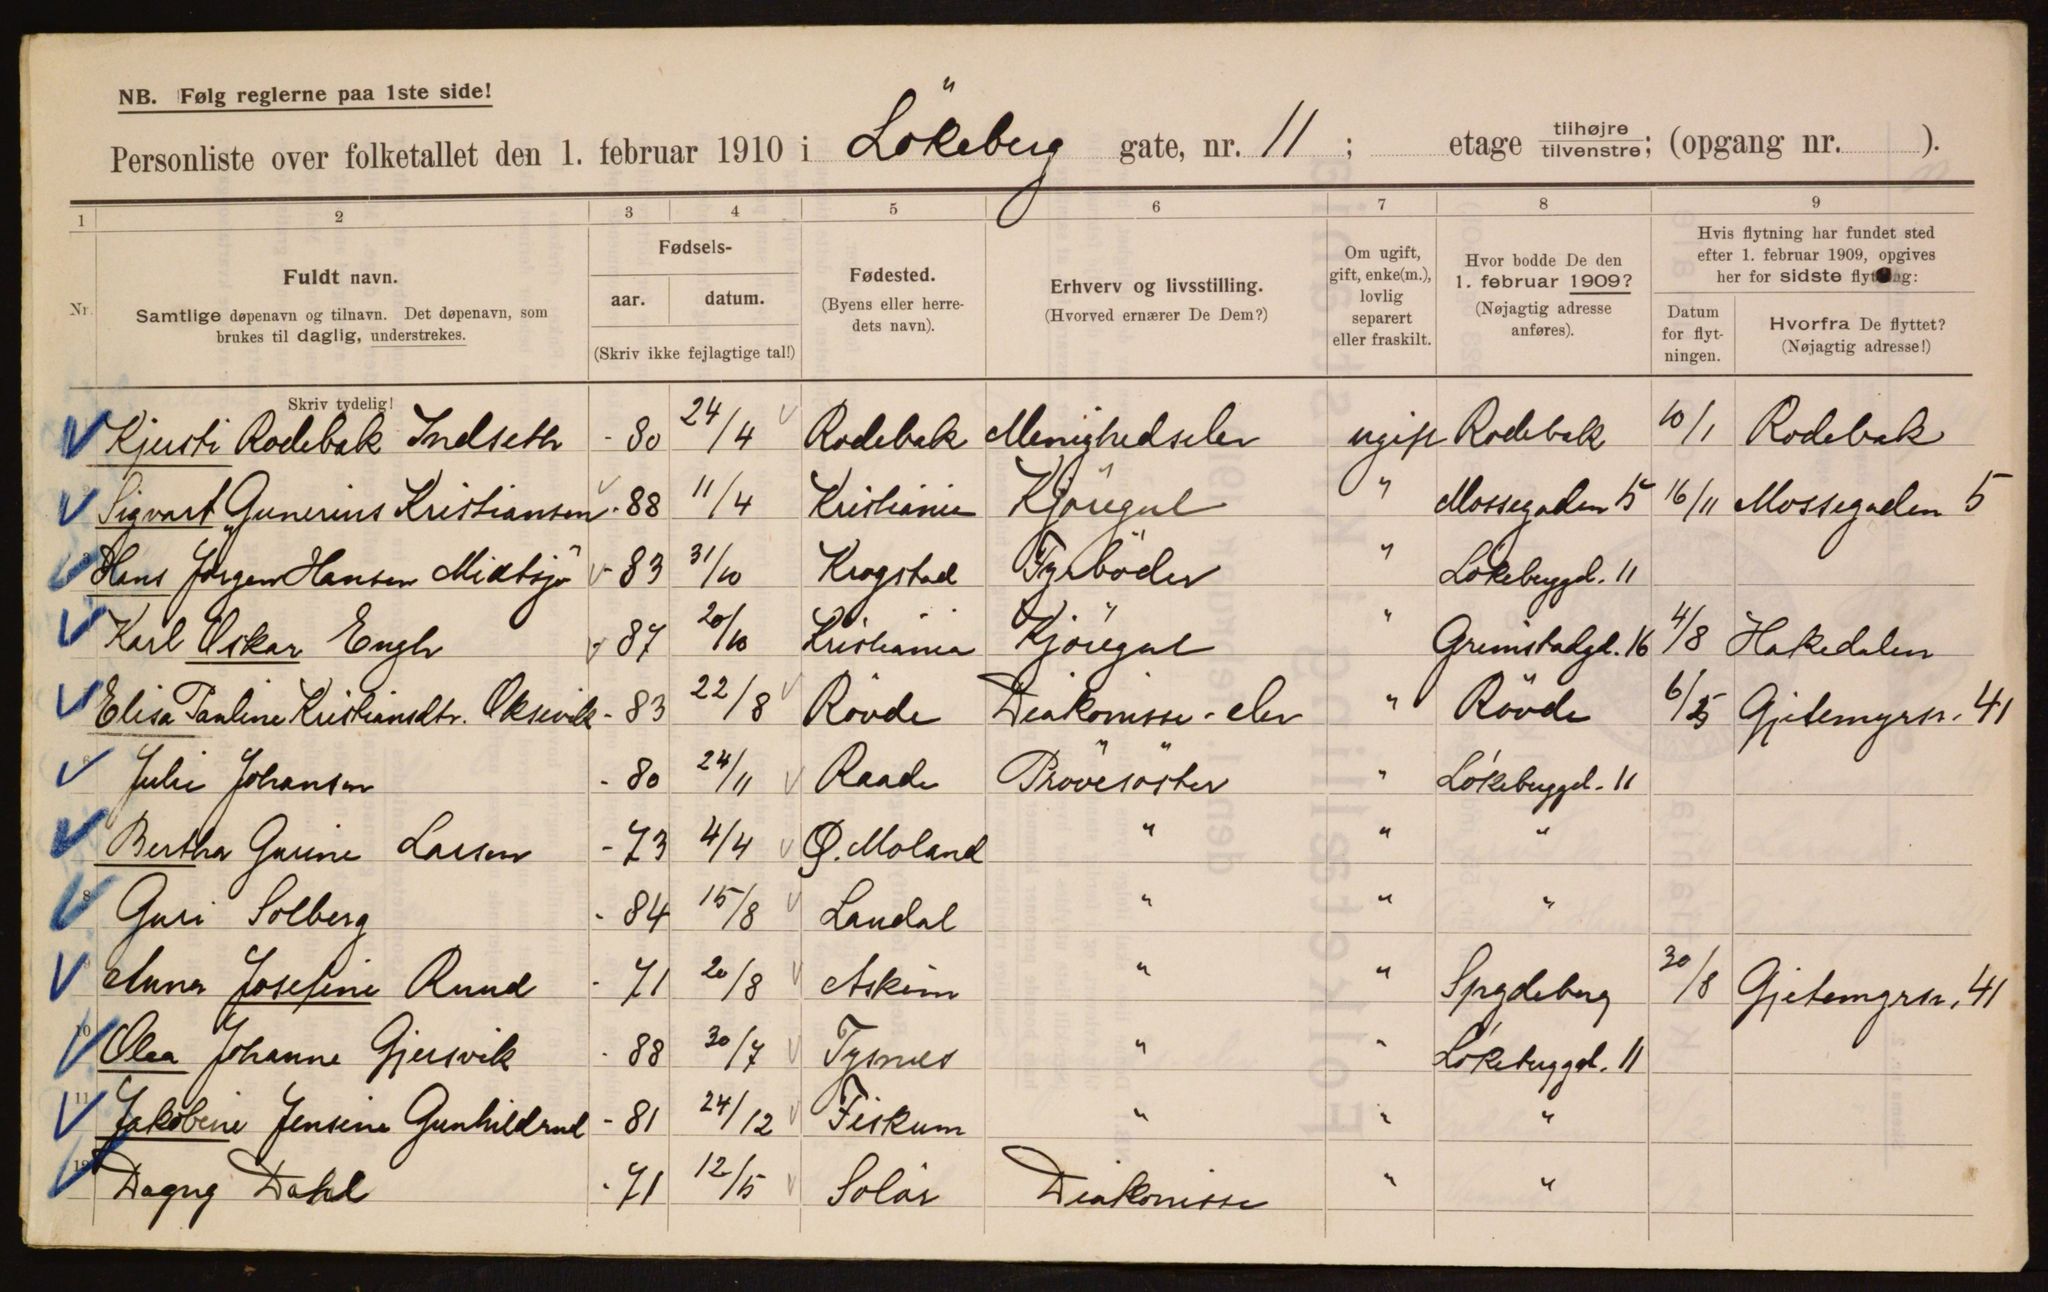 NB. Følg reglerne paa 1ste side!
Personliste over folketallet den 1. februar 1910 i Lökeberg gate, nr. 11 ; etage tilhøjre tilvenstre; (opgang nr. ).
1 2 3 4 5 6 7 8 9
Nr.
Fuldt navn.
Samtlige døpenavn og tilnavn. Det døpenavn, som
brukes til daglig, understrekes.
Fødsels-
aar. datum.
(Skriv ikke fejlagtige tal!)
Fødested.
(Byens eller herre-
dets navn).
Erhverv og livsstilling.
(Hvorved ernærer De Dem?)
Om ugift,
gift, enke(m.),
lovlig
separert
eller fraskilt.
Hvor bodde De den
1. februar 1909?
(Nøjagtig adresse
anføres).
Hvis flytning har fundet sted
efter 1. februar 1909, opgives
her for sidste flytning:
Datum
for flyt-
ningen.
Hvorfra De flyttet?
(Nøjagtig adresse!)
Skriv tydelig!
Kjersti Rodebak Indseth - 80 24/4 Rodebak Menighedselev ugift Rodebak 10/1 Rodebak
Sigvart Gunerius Kristiansen - 88 11/4 Kristiania Kjöregut " Mossegaden 5 16/11 Mossegaden 5
Hans Jörgen Hansen Midtsjö - 83 31/10 Krogstad Fyrböder " Lökeberggd. 11
Karl Oskar Engh - 87 20/10 Kristiania Kjöregut " Grimstadgd. 16 4/8 Hakedalen
Elisa Pauline Kristiansdtr. Oksevik - 83 22/8 Rövde Diakonisse-elev " Rövde 6/5 Gjetemyrsv. 41
Julie Johansen - 80 24/11 Raade Prövesöster " Lökeberggd. 11
Bertha Gurine Larsen - 73 4/4 Ø. Moland " " "
8 Guri Solberg - 84 15/8 Laudal " " "
9 Anna Josefine Ruud - 71 20/8 Askim " " Spydeberg 30/8 Gjetemyrsv. 41
10 Olea Johanne Gjersvik - 88 30/7 Tysnes " " Lökeberggd. 11
11 Jakobine Jensine Gunhildrud - 81 24/12 Fiskum " " "
12 Dagny Dahl - 71 12/5 Solör Diakonisse " "